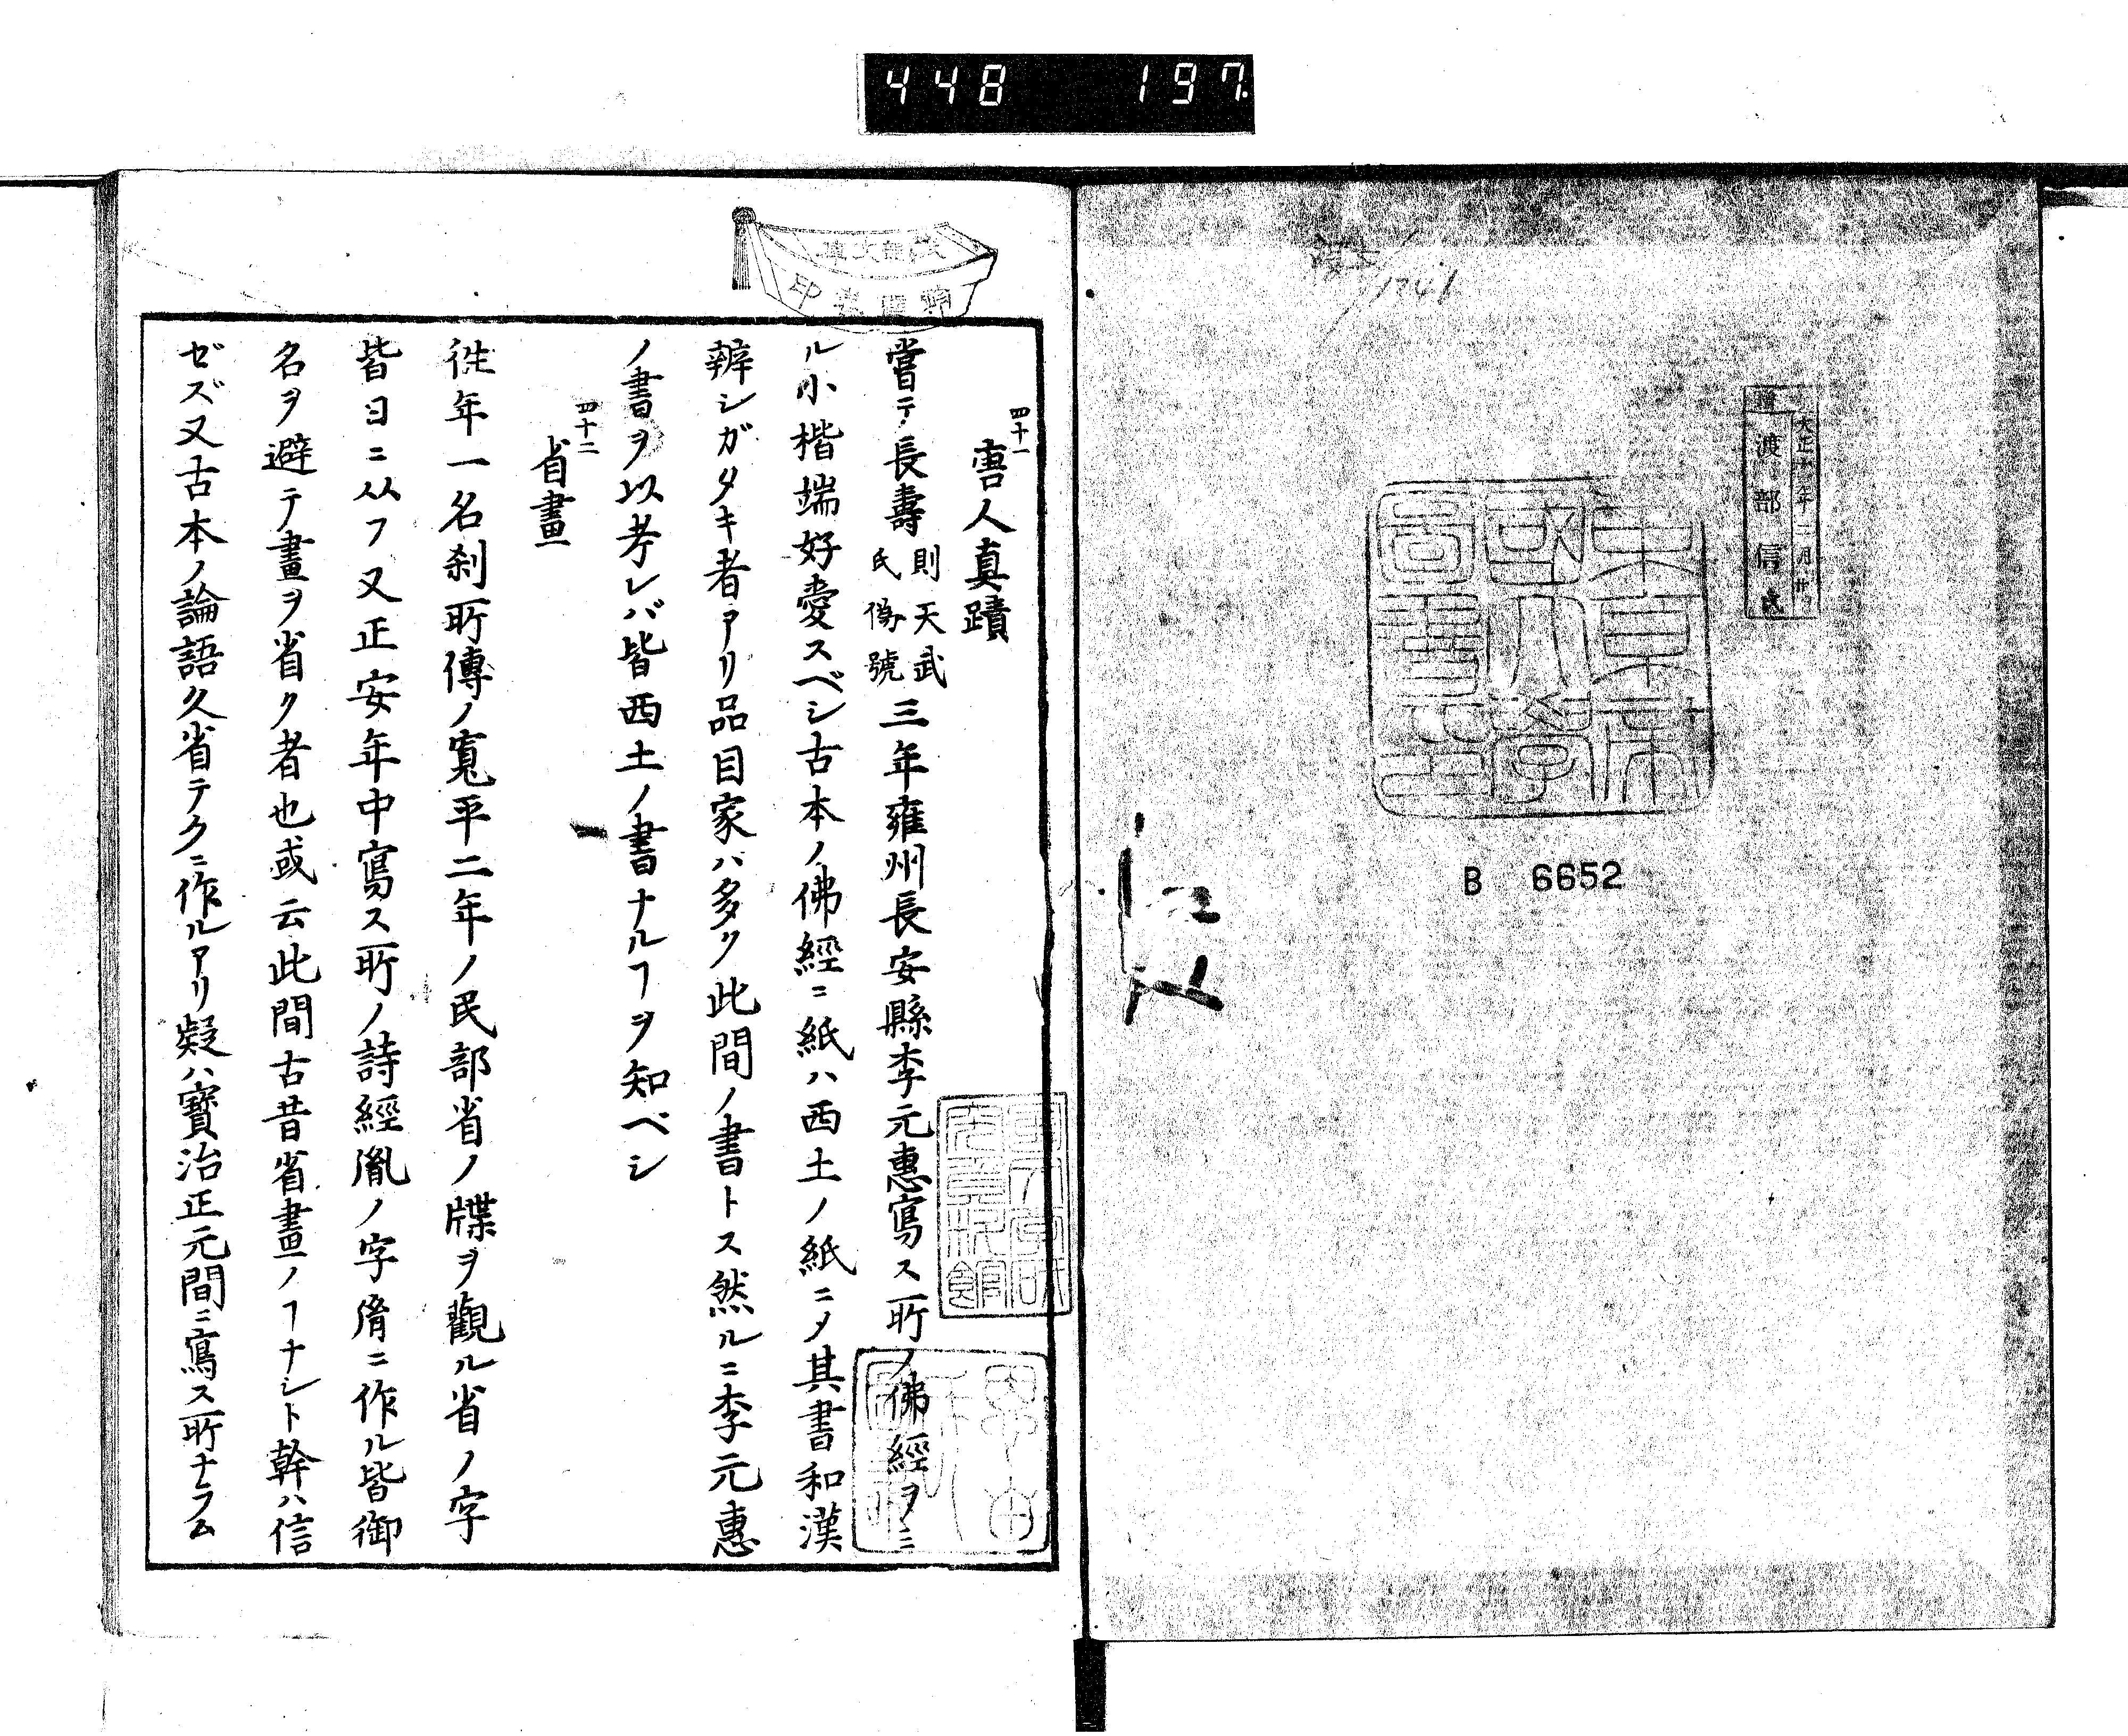 448 197.
大正十三年二月廿
渡部信氏
東京帝
國大學
圖書
B 6652
1741
四十一
唐人真蹟
嘗テ長壽
則天武
氏僞號
三年雍州長安縣李元惠寫ス所ノ佛經ヲミ
ル小楷端好愛スベシ古本ノ佛經ニ紙ハ西土ノ紙ニメ其書和漢
辨シガタキ者アリ品目家ハ多ク此間ノ書トス然ルニ李元惠
ノ書ヲ以考レバ皆西土ノ書ナルヿヲ知ベシ
四十二
省畫
徃年一名刹所傳ノ寬平二年ノ民部省ノ牒ヲ觀ル省ノ字
皆日ニ从フ又正安年中寫ス所ノ詩經胤ノ字㑞ニ作ル皆御
名ヲ避テ畫ヲ省ク者也或云此間古昔省畫ノヿナシト幹ハ信
ゼズ又古本ノ論語久省テクニ作ルアリ疑ハ寶治正元間ニ寫ス所ナラム